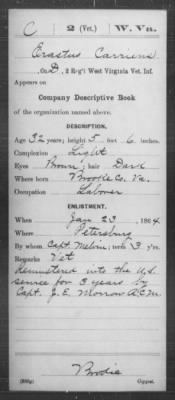 C 2 (Vet.) W. Va.
Erastus Carriens
Co. D, 2 Reg't West Virginia Vet. Inf.
Appears on
Company Descriptive Book
of the organization named above.
DESCRIPTION.
Age 32 years; height 5 feet 6 inches.
Complexion Light
Eyes Brown; hair Dark
Where born Brooke Co. Va.
Occupation Laborer
ENLISTMENT.
When Jan 23, 1864.
Where Petersburg
By whom Capt. Melvin; term 3 y'rs.
Remarks Vet
Remustered into the U.S.
service for 3 years by
Capt. J. E. Morrow A.C.M.
Brodie
Copyist.